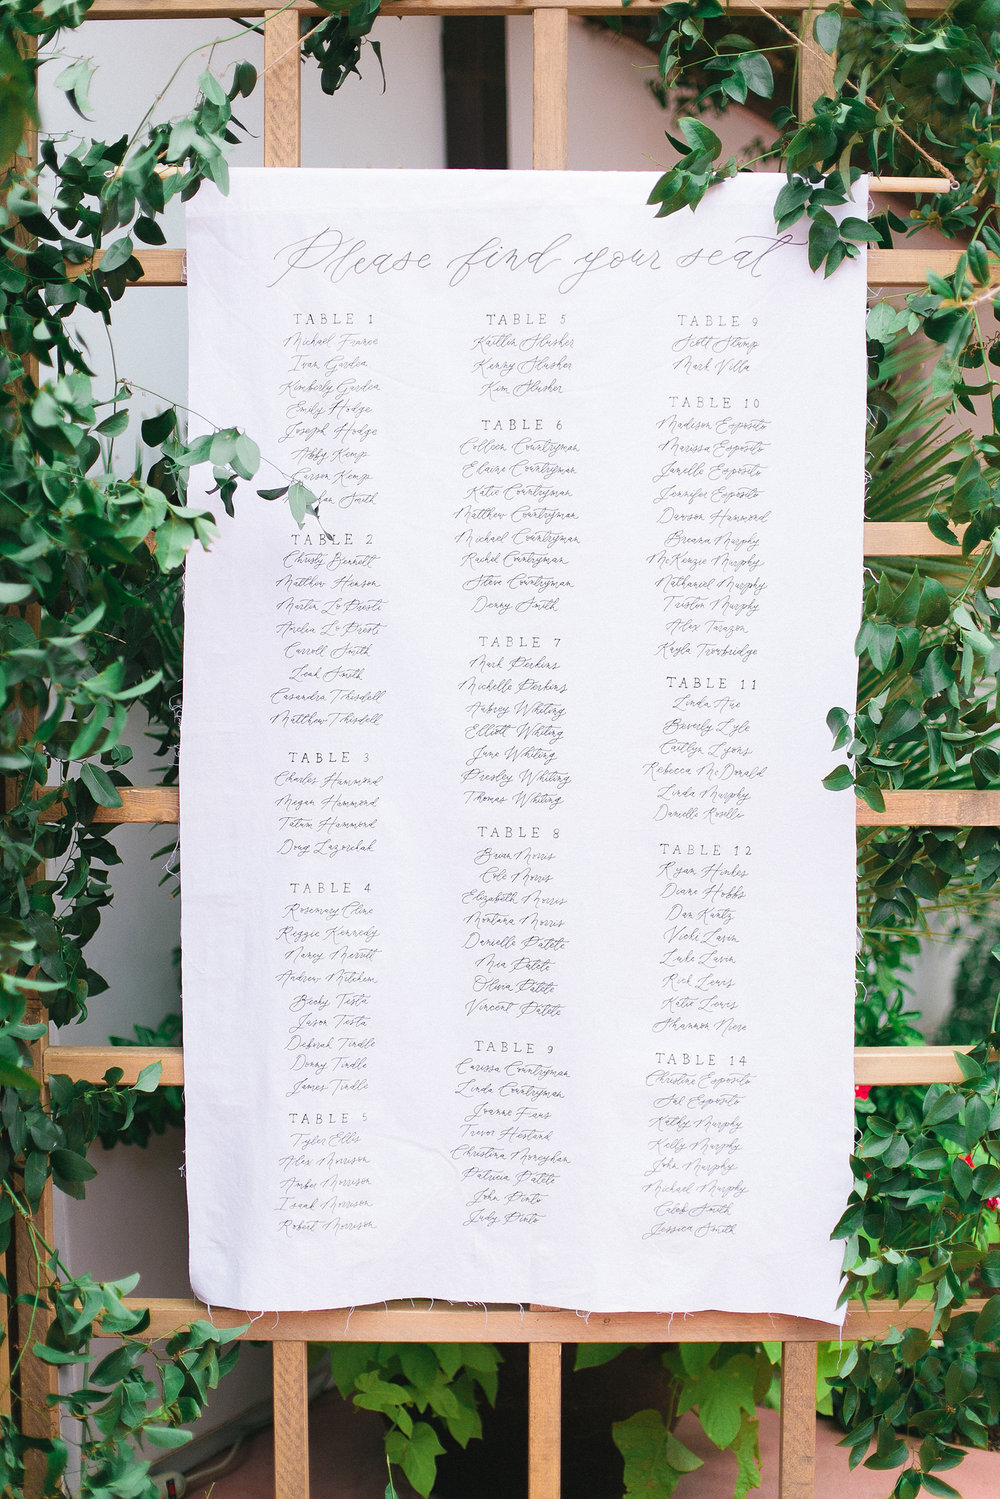 Please find your seat
TABLE 1
Michael France
Ivan Gardea
Kimberly Gardea
Emily Hodge
Joseph Hodge
Abby Kemp
Carson Kemp
Smith
TABLE 2
Christy Bennett
Matthew Henson
Martin Lo Presti
Amelia Lo Presti
Carroll Smith
Leah Smith
Casandra Thisdell
Matthew Thisdell
TABLE 3
Charles Hammond
Megan Hammond
Tatum Hammond
Doug Lazorchak
TABLE 4
Rosemary Cline
Reggie Kennedy
Nancy Merritt
Andrew Mitchem
Becky Testa
Jason Testa
Deborah Tindle
Donny Tindle
James Tindle
TABLE 5
Tyler Ellis
Alex Morrison
Amber Morrison
Isaak Morrison
Robert Morrison
TABLE 5
Kaitlin Slusher
Kenny Slusher
Kim Slusher
TABLE 6
Colleen Countryman
Elaine Countryman
Katie Countryman
Matthew Countryman
Michael Countryman
Rachel Countryman
Steve Countryman
Denny Smith
TABLE 7
Mark Perkins
Michelle Perkins
Aubrey Whiting
Elliott Whiting
June Whiting
Presley Whiting
Thomas Whiting
TABLE 8
Brian Morris
Cole Morris
Elizabeth Morris
Montana Morris
Danielle Patete
Mia Patete
Olivia Patete
Vincent Patete
TABLE 9
Carissa Countryman
Linda Countryman
Joanne Faus
Trevor Hestand
Christina Moneyhan
Patricia Patete
John Pinto
Judy Pinto
TABLE 9
Scott Stump
Mark Villa
TABLE 10
Madison Exposito
Marissa Exposito
Janelle Exposito
Jennifer Exposito
Dawson Hammond
Breana Murphy
McKenzie Murphy
Nathaniel Murphy
Triston Murphy
Alex Tarazon
Kayla Trowbridge
TABLE 11
Linda Aue
Beverly Lyle
Caitlyn Lyons
Rebecca McDonald
Linda Murphy
Danielle Roselli
TABLE 12
Ryan Hinkes
Diane Hobbs
Dan Kuntz
Vicki Lavin
Luke Lavin
Rick Lewis
Katie Lewis
Shannon Niere
TABLE 14
Christine Exposito
Sal Exposito
Kathy Murphy
Kelly Murphy
John Murphy
Michael Murphy
Caleb Smith
Jessica Smith